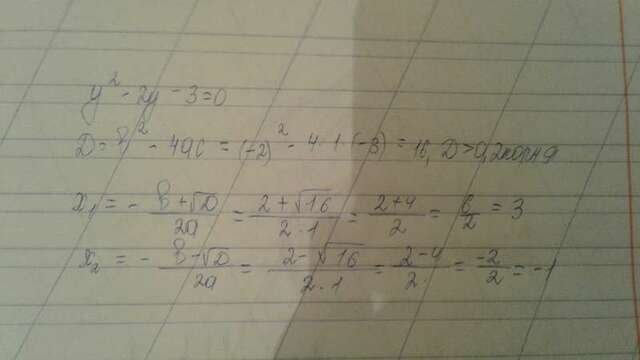 y² - 2y - 3 = 0
D = b² - 4ac = (-2)² - 4·1·(-3) = 16, D > 0, 2
x₁ = - b + √D / 2a = 2 + √16 / 2·1 = 2 + 4 / 2 = 6 / 2 = 3
x₂ = - b - √D / 2a = 2 - √16 / 2·1 = 2 - 4 / 2 = -2 / 2 = -1